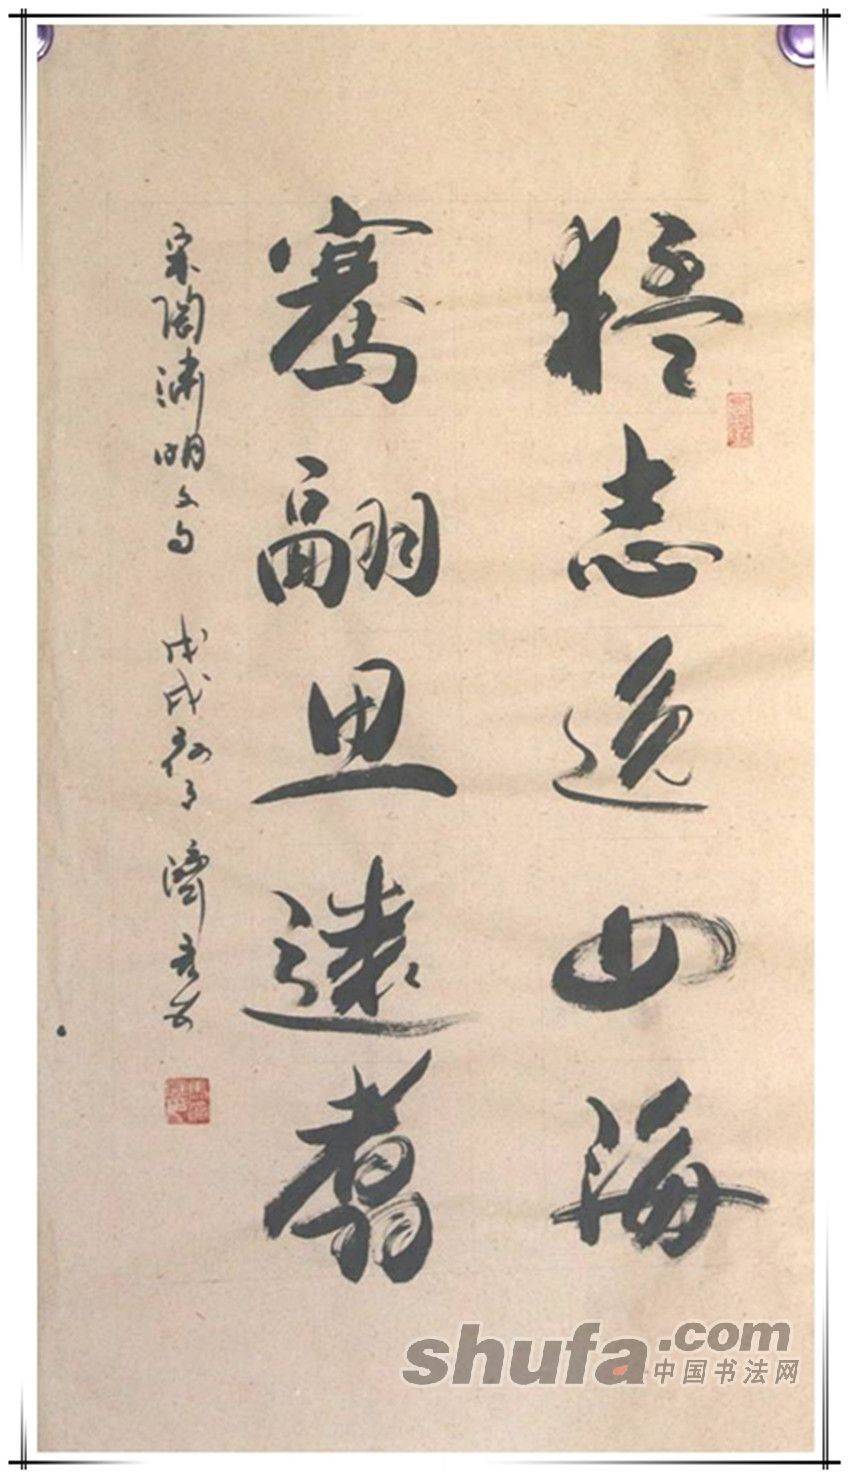 猛志逸四海
騫翮思遠翥
陶渊明文句 戊戌 月 濟
shufa.com
中国书法网